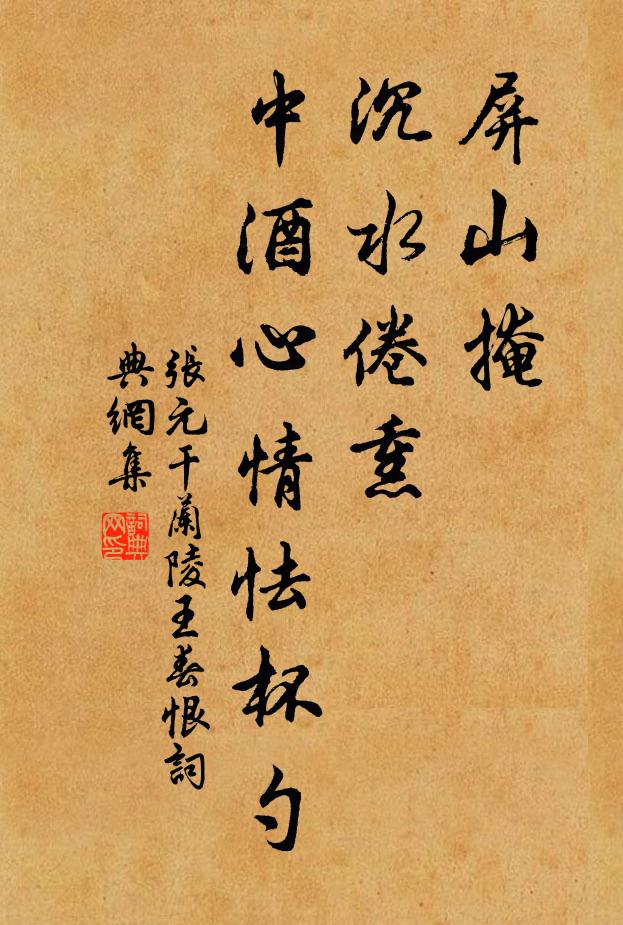 屏山掩
沉水倦熏
中酒心情怯杯勺
張元干蘭陵王春恨詞
典網集
詞典網印